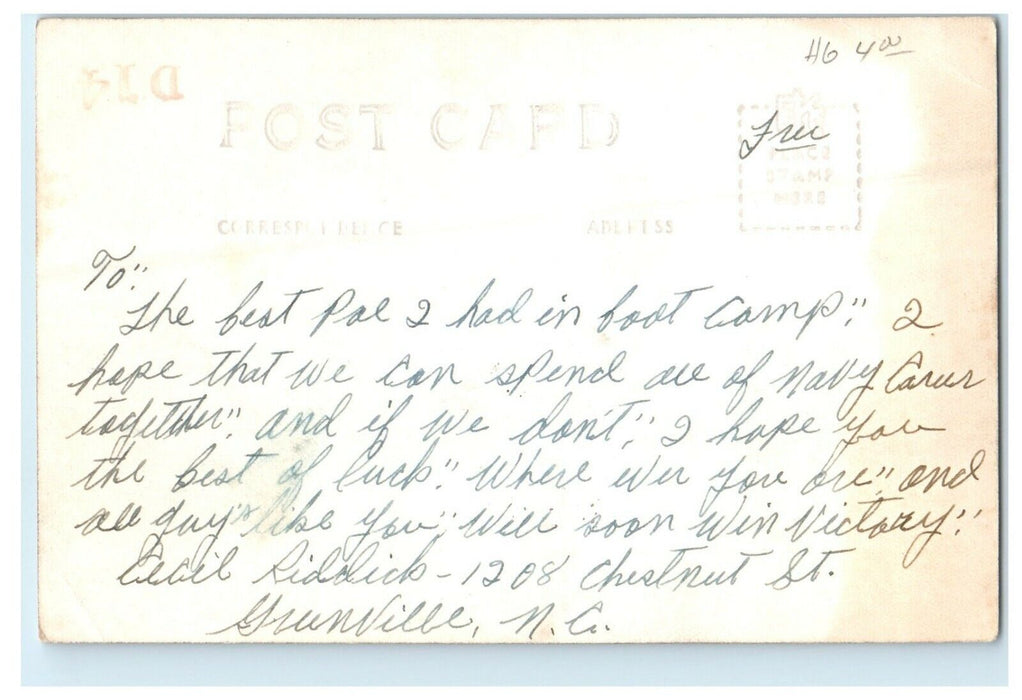 HG 4 00
D14
POST CARD
Free
PLACE
STAMP
HERE
CORRESPONDENCE
ADDRESS
To"
The best Pal I had in boot Camp," I
hope that we can spend all of Navy Career
together". and if we don't," I hope you
the best of luck". Where ever you are", and
all guy's like you" will soon win Victory".
Cecil Riddick - 1208 Chestnut St.
Greenville, N.C.